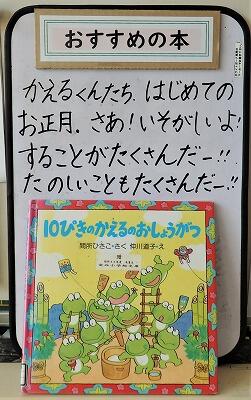 おすすめの本
かえるくんたち、はじめての
お正月。さあ！いそがしいよ！
することがたくさんだー!!
たのしいこともたくさんだー!!
10ぴきのかえるのおしょうがつ
間所ひさこ・さく 仲川道子・え